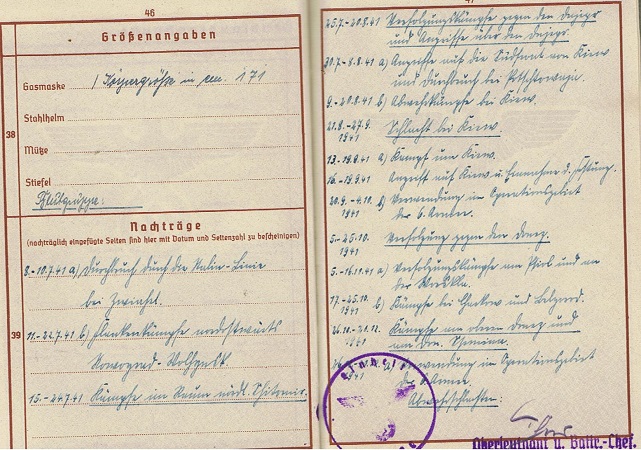 46
Größenangaben
Gasmaske / Körpergröße in cm. 171
Stahlhelm
38
Mütze
Stiefel
Blutgruppe:
Nachträge
(nachträglich eingefügte Seiten sind hier mit Datum und Seitenzahl zu bescheinigen)
8.-10.7.41 a) Durchbruch durch die Stalin-Linie
bei Zwiahel.
39
11.-22.7.41 b) Flankenkämpfe nordostwärts
Nowograd-Wolhynsk
15.-24.7.41 Kämpfe im Raum nördl. Shitomir.
47
25.7.-20.8.41 Verfolgungskämpfe gegen den Dnjepr
und Angriffe über den Dnjepr.
30.7.-8.8.41 a) Angriffe auf die Südfront von Kiew
und Durchbruch bei
9.-20.8.41 b) Abwehrkämpfe bei Kiew.
21.8.-27.9.
1941 Schlacht bei Kiew.
13.-19.8.41 a) Kampf um Kiew.
16.-19.9.41 Angriff auf Kiew u. Einnahme d. Festung.
20.9.-4.10.
1941 d) Verwendung im Operationsgebiet
der 6. Armee.
5.-25.10.
1941 Verfolgung gegen den Donez.
5.-16.10.41 a) Verfolgungskämpfe am Psiol und an
der Worskla.
17.-25.10.
1941 b) Kämpfe bei Charkow und Belgorod.
26.10.-31.12.
1941 Kämpfe am oberen Donez und
am Don.
Verwendung im Operationsgebiet
1941 der 6. Armee.
Abwehrschlachten:
Oberleutnant u. Battr.-Chef.